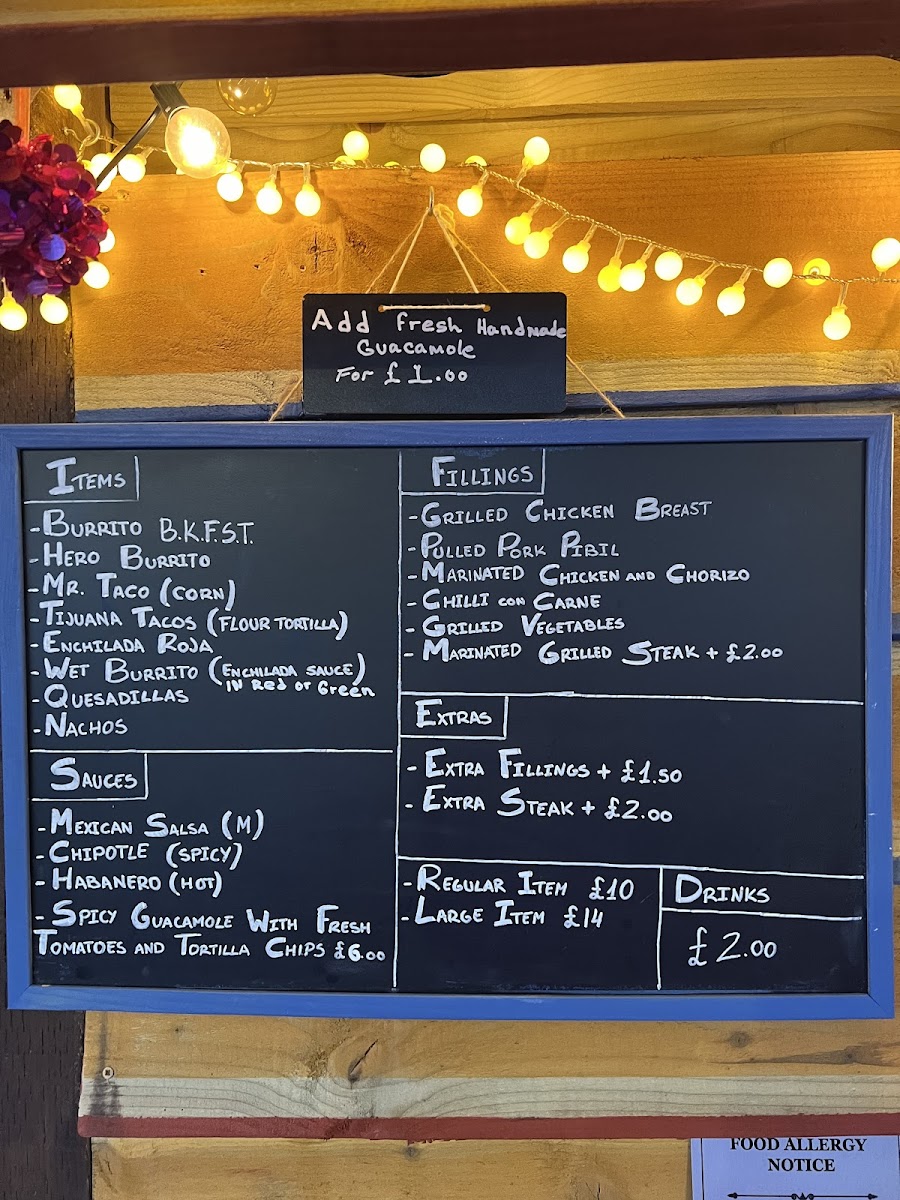 Add fresh Handmade
Guacamole
For £1.00
ITEMS
- BURRITO B.K.F.S.T.
- HERO BURRITO
- MR. TACO (CORN)
- TIJUANA TACOS (FLOUR TORTILLA)
- ENCHILADA ROJA
- WET BURRITO (ENCHILADA SAUCE)
IN Red or Green
- QUESADILLAS
- NACHOS
SAUCES
- MEXICAN SALSA (M)
- CHIPOTLE (SPICY)
- HABANERO (HOT)
- SPICY GUACAMOLE WITH FRESH
TOMATOES AND TORTILLA CHIPS £6.00
FILLINGS
- GRILLED CHICKEN BREAST
- PULLED PORK PIBIL
- MARINATED CHICKEN AND CHORIZO
- CHILLI CON CARNE
- GRILLED VEGETABLES
- MARINATED GRILLED STEAK + £2.00
EXTRAS
- EXTRA FILLINGS + £1.50
- EXTRA STEAK + £2.00
- REGULAR ITEM £10
- LARGE ITEM £14
DRINKS
£2.00
FOOD ALLERGY
NOTICE